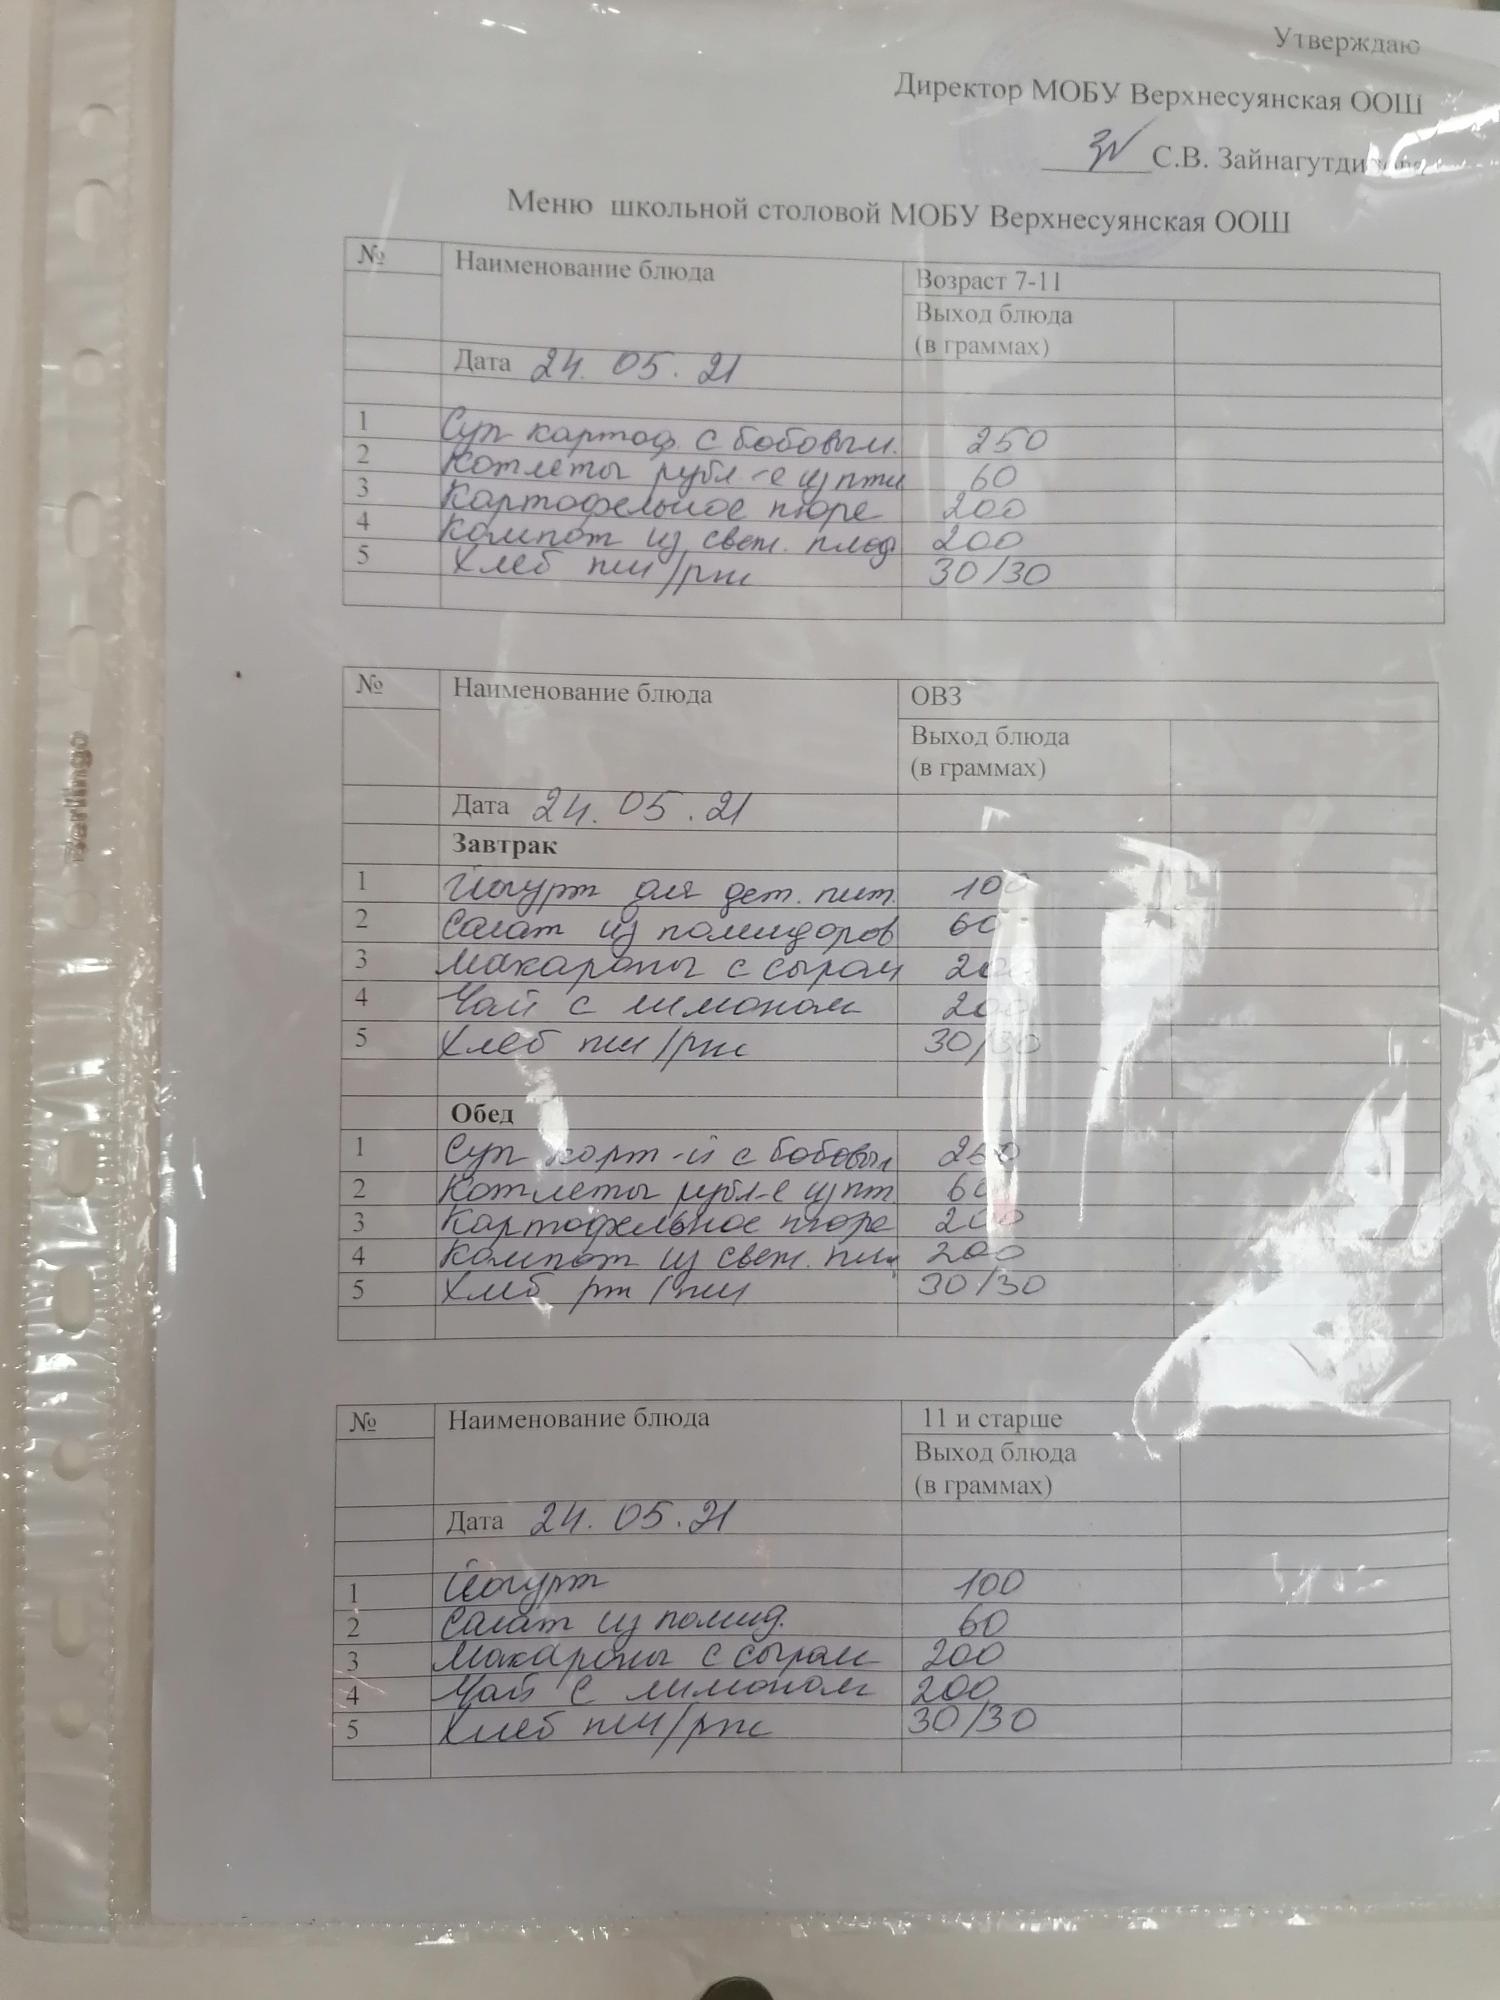 Утверждаю
Директор МОБУ Верхнесуянская ООШ
С.В.
Меню школьной столовой МОБУ Верхнесуянская ООШ
№ Наименование блюда Возраст 7-11
Выход блюда
(в граммах)
Дата 24.05.21
1 Суп картоф. с бобовым. 250
2 Котлеты рубл-е из пти 60
3 Картофельное пюре 200
4 Компот из свеж. плод 200
5 Хлеб пш/рж 30/30
№ Наименование блюда ОВЗ
Выход блюда
(в граммах)
Дата 24.05.21
Завтрак
1 Йогурт для дет. пит. 100
2 Салат из помидоров 60
3 Макароны с сыром 200
4 Чай с лимоном 200
5 Хлеб пш/рж 30/30
Обед
1 Суп карт-й с бобовым 250
2 Котлеты рубл-е из пт. 60
3 Картофельное пюре 200
4 Компот из свеж. 200
5 Хлеб рж/пш 30/30
№ Наименование блюда 11 и старше
Выход блюда
(в граммах)
Дата 24.05.21
1 Йогурт 100
2 Салат из помид. 60
3 Макароны с сыром 200
4 Чай с лимоном 200
5 Хлеб пш/рж 30/30
Berlingo